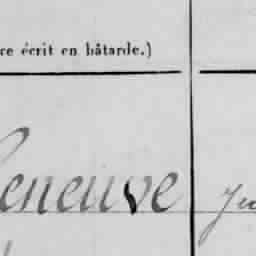 re écrit en bâtarde.)
leneuve